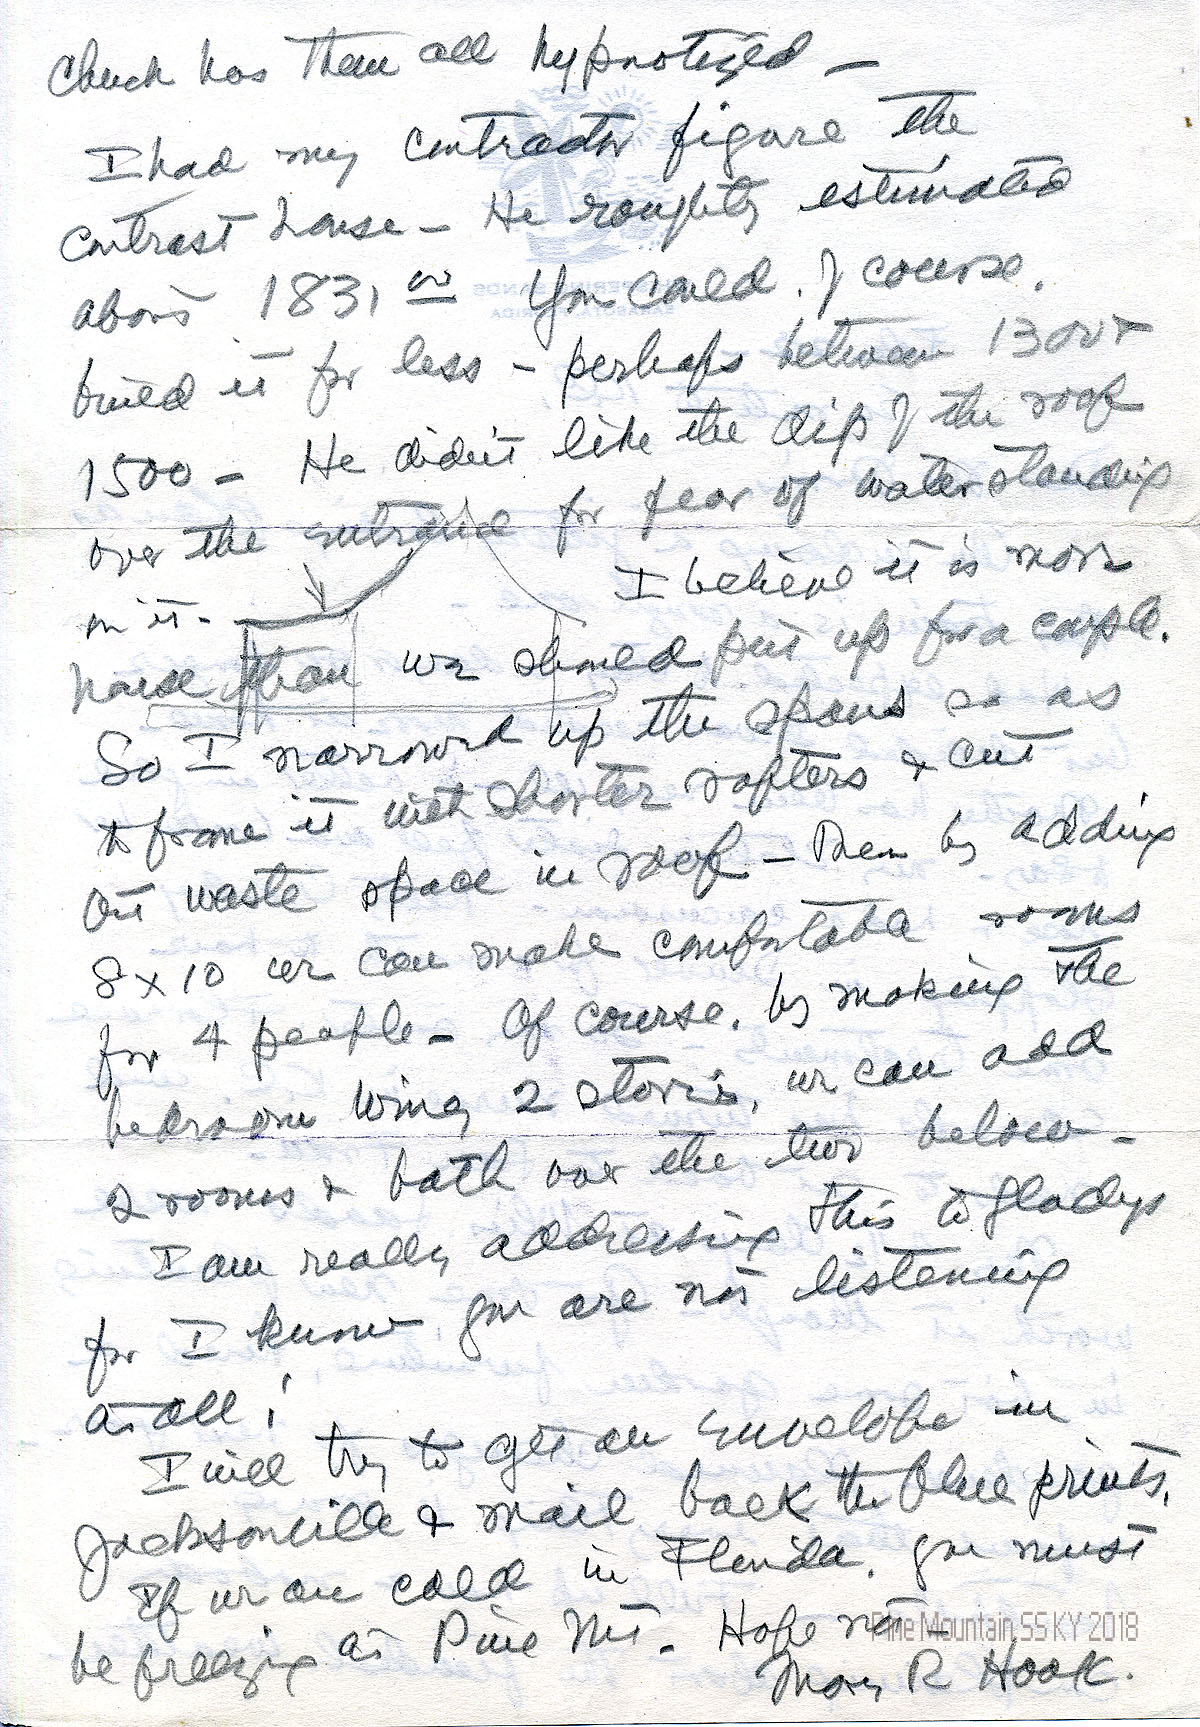 Chuck has them all hypnotized —
I had my contractor figure the
contrast house — He roughly estimated
about 1831 00 You could, of course,
build it for less — perhaps between 1300 +
1500 — He didn't like the dip of the roof
over the entrance for fear of water standing
on it. I believe it is more
house than we should put up for a couple.
So I narrowed up the spans so as
to frame it with shorter rafters & cut
out waste space in roof — Then by adding
8 x 10 we can make comfortable rooms
for 4 people — Of course, by making the
bedroom wing 2 stories, we can add
2 rooms & bath over the two below —
I am really addressing this to Gladys
for I know you are not listening
at all!
I will try to get an envelope in
Jacksonville & mail back the blue prints.
If we are cold in Florida, you must
be freezing at Pine Mt. Hope not —
Mary R Hook.
Pine Mountain SS KY 2018
WHISPERING SANDS
SARASOTA, FLORIDA